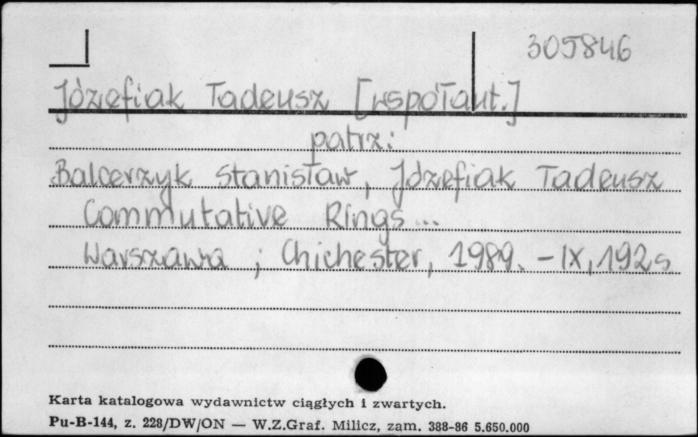 305846
Józefiak Tadeusz [współaut.]
patrz:
Balcerzyk Stanisław, Józefiak Tadeusz
Commutative Rings...
Warszawa ; Chichester, 1989. - IX, 192 s
Karta katalogowa wydawnictw ciągłych i zwartych.
Pu-B-144, z. 228/DW/ON — W.Z.Graf. Milicz, zam. 388-86 5.650.000